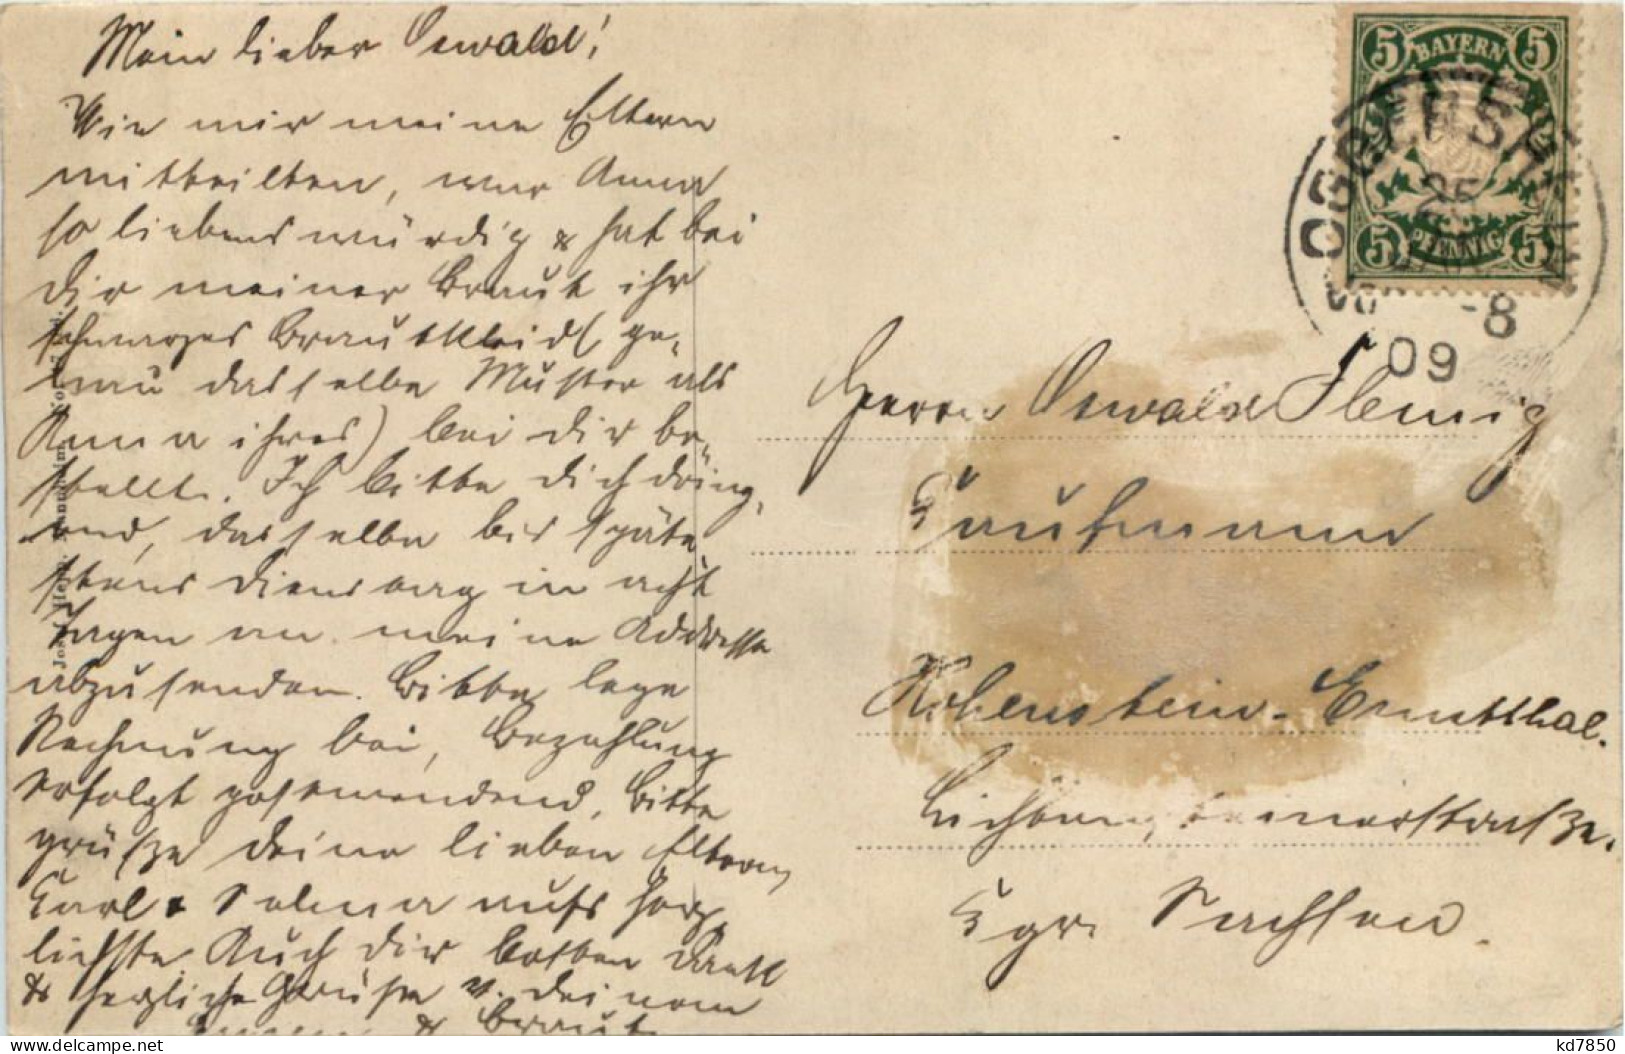 Mein lieber Oswald!
Wie mir meine Eltern
mittheilten, war Anna
so liebenswürdig & hat bei
Dir meiner Braut ihr
schwarzes Brautkleid (ge-
nau dasselbe Muster als
Anna ihres) bei Dir be-
stellt. Ich bitte Dich dring-
end, dasselbe bis späte-
stens Dienstag in acht
Tagen an meine Addresse
abzusenden. Bitte lege
Rechnung bei, Bezahlung
erfolgt postwendend. Bitte
grüße deine lieben Eltern,
Carl & Selma aufs herz-
lichste Auch Dir besten Dank
& herzliche Grüße v. Deinem
& Braut
BAYERN
5 5
5 PFENNIG 5
25
-8
09
Herrn Oswald Flemig
Kaufmann
Hohenstein-Ernstthal.
Lichtensteinerstraße.
Kgr. Sachsen.
kd7850